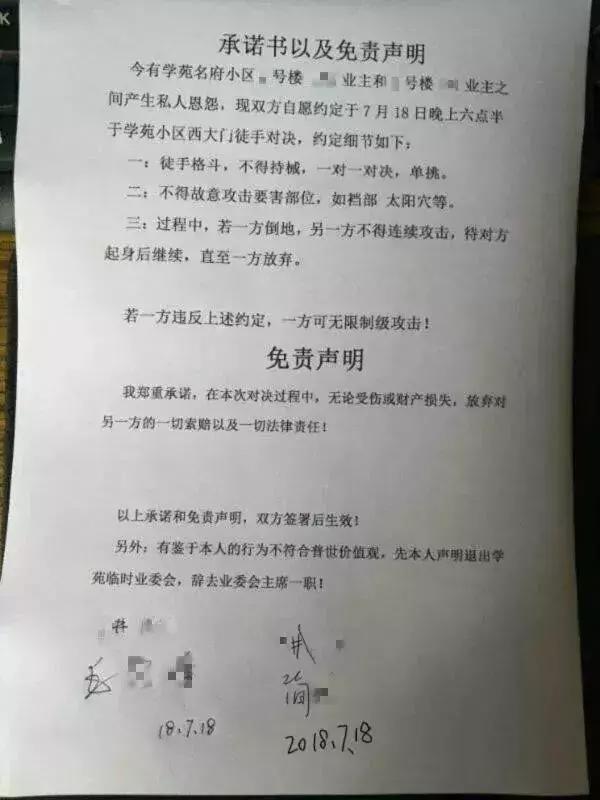 承诺书以及免责声明
今有学苑名府小区 号楼 业主和 号楼 业主之
间产生私人恩怨，现双方自愿约定于7月18日晚上六点半
于学苑小区西大门徒手对决，约定细节如下：
一：徒手格斗，不得持械，一对一对决，单挑。
二：不得故意攻击要害部位，如裆部 太阳穴等。
三：过程中，若一方倒地，另一方不得连续攻击，待对方
起身后继续，直至一方放弃。
若一方违反上述约定，一方可无限制级攻击！
免责声明
我郑重承诺，在本次对决过程中，无论受伤或财产损失，放弃对
另一方的一切索赔以及一切法律责任！
以上承诺和免责声明，双方签署后生效！
另外：有鉴于本人的行为不符合普世价值观，先本人声明退出学
苑临时业委会，辞去业委会主席一职！
18.7.18
2018.7.18